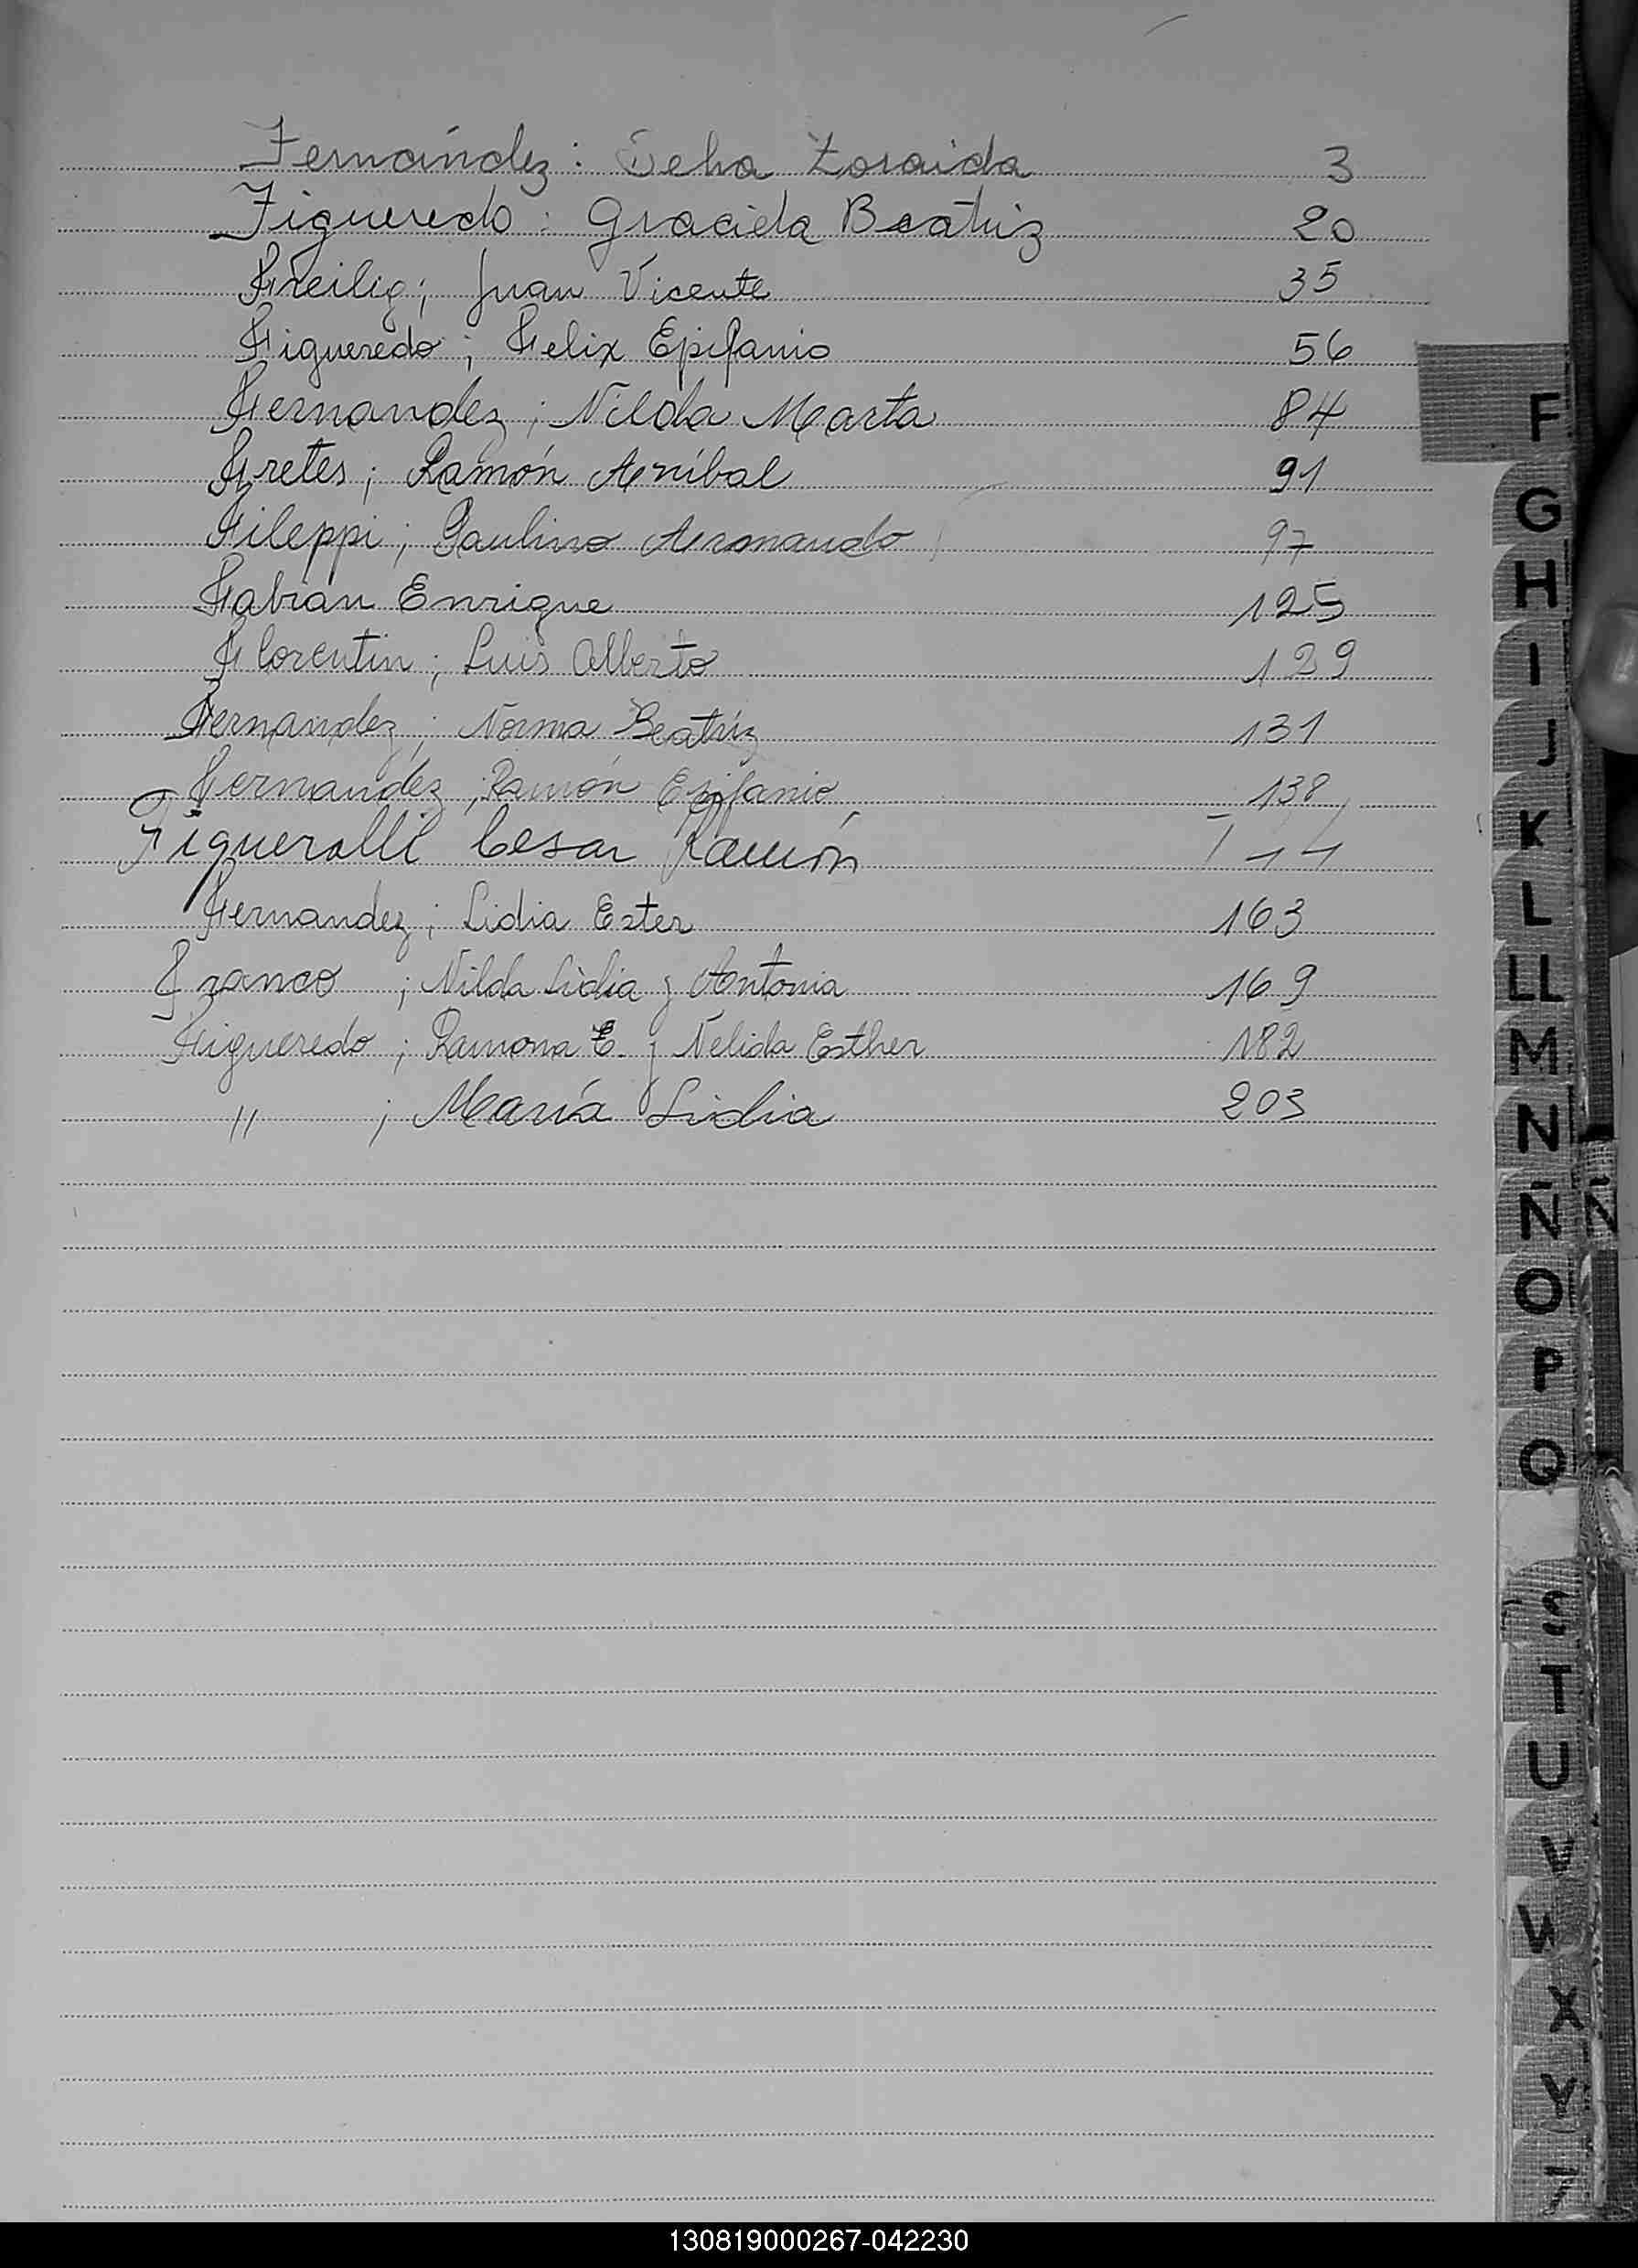 Fernández: Delia Zoraida 3
Figueredo: Graciela Beatriz 20
Freilig; Juan Vicente 35
Figueredo; Felix Epifanio 56
Fernandez; Nilda Marta 84
Fretes; Ramón Aníbal 91
Fileppi; Paulino Armando 97
Fabian Enrique 125
Florentin; Luis Alberto 129
Fernandez; Norma Beatríz 131
Fernandez; Ramón Epifanio 138
Cesar Ramón
Fernandez; Lidia Ester 163
Franco ; Nilda Lidia y Antonia 169
Figueredo ; Ramona E. y Nelida Esther 182
" ; María Lidia 203
F
G
H
I
J
K
L
LL
M
N
Ñ
O
P
Q
S
T
U
V
W
X
Y
130819000267-042230